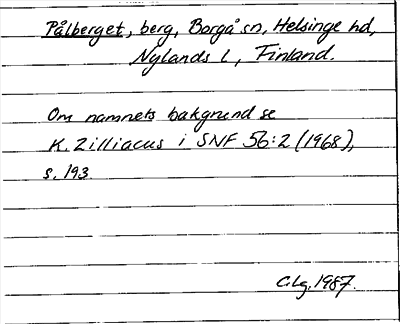 Pålberget, berg, Borgå sn, Helsinge hd,
Nylands l, Finland.
Om namnets bakgrund se
K. Zilliacus i SNF 56:2 (1968),
s. 193
C.Lg. 1987.